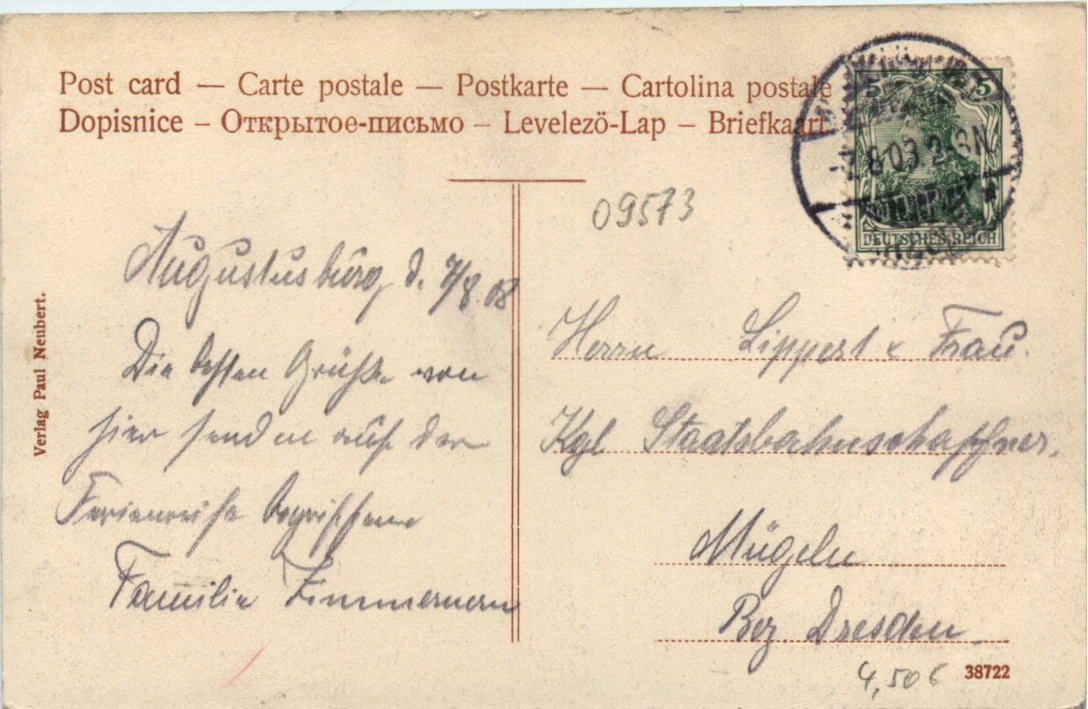 Post card — Carte postale — Postkarte — Cartolina postale
Dopisnice – Открытое-письмо – Levelezö-Lap – Briefkaart
5 5
8.03
DEUTSCHES REICH
09573
Augustusburg, d. 7/8.08
Die besten Grüße von
hier senden auf der
Ferienreise begriffene
Familie
Herrn Lippert & Frau.
Kgl Staatsbahnschaffner.
Mügeln
Bez. Dresden
4,50 €
38722
Verlag Paul Neubert.